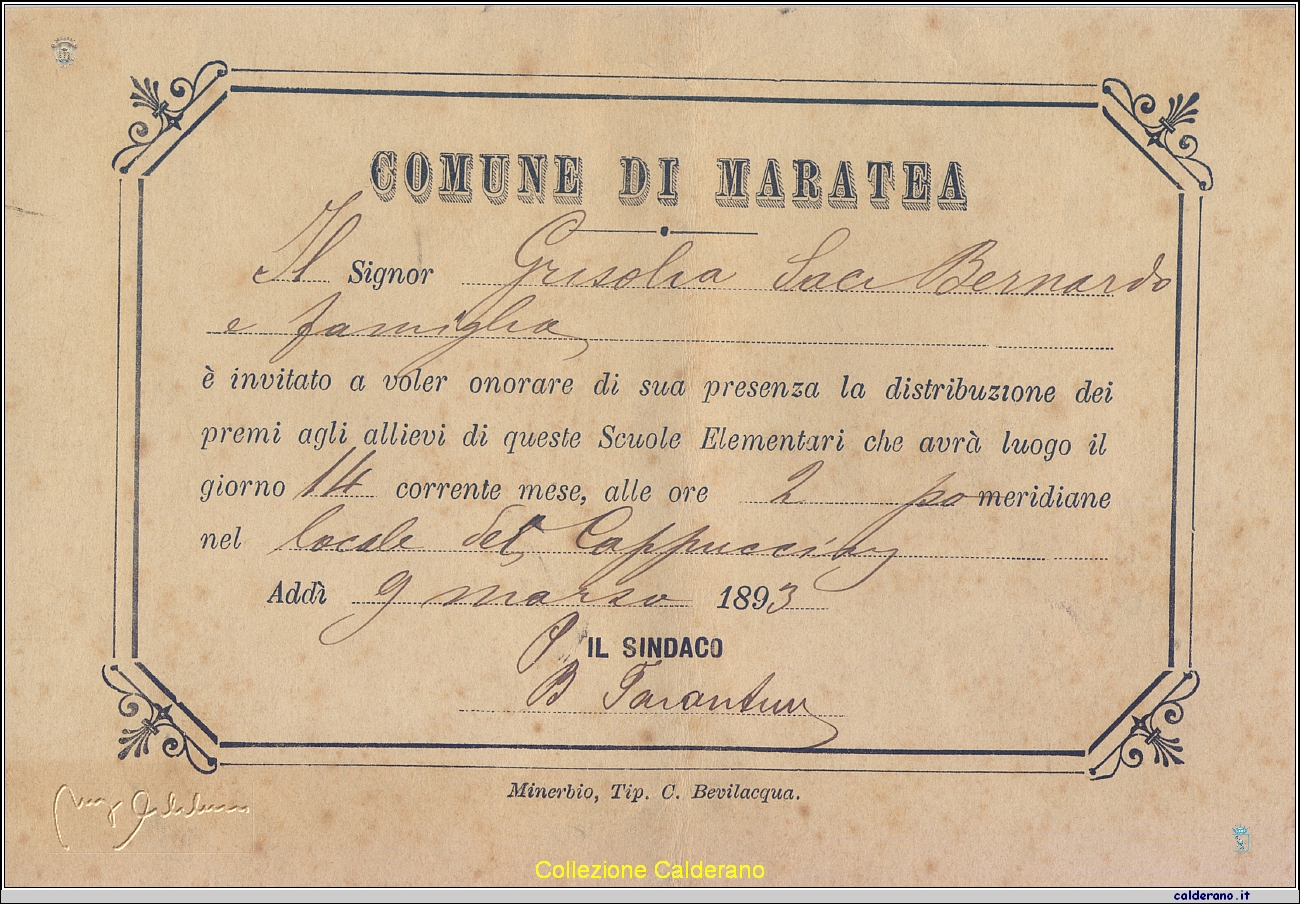 COMUNE DI MARATEA
Il Signor Grisolia Sacr Bernardo
e famiglia
è invitato a voler onorare di sua presenza la distribuzione dei
premi agli allievi di queste Scuole Elementari che avrà luogo il
giorno 14 corrente mese, alle ore 2 po meridiane
nel locale dei Cappuccini
Addì 9 marzo 1893
IL SINDACO
B
Minerbio, Tip. C. Bevilacqua.
Collezione Calderano
calderano.it